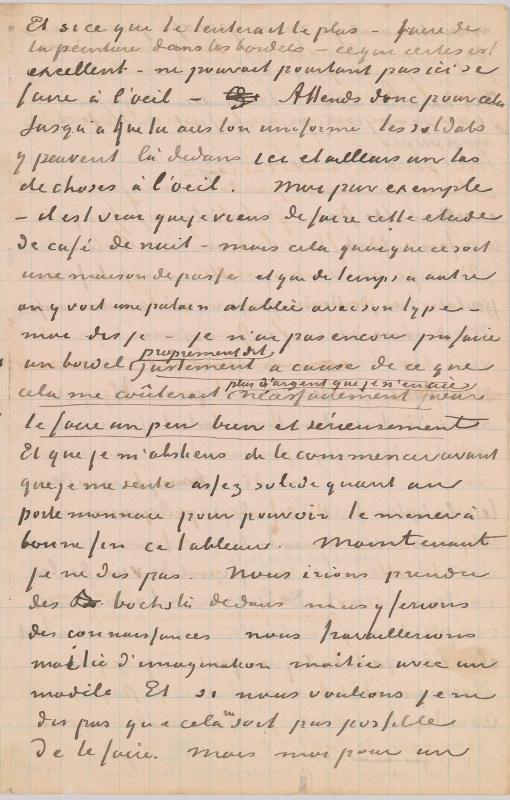 Et si ce que te tenterait le plus – faire de
la peinture dans les bordels – ce que certes est
excellent – ne pouvait pourtant pas ici se
faire à l'oeil – Attends donc pour cela
jusqu'a que tu aies ton uniforme les soldats
y peuvent là dedans ici et ailleurs un tas
de choses à l'oeil. Moi par exemple
– il est vrai que je viens de faire cette etude
de café de nuit – mais cela quoique ce soit
une maison de passe et que de temps a autre
on y voit une putain attablée avec son type –
moi dis je – je n'ai pas encore pu faire
un bordel proprement dit justement a cause de ce que
cela me coûterait plus d'argent que je n'en aie nécessairement pour
le faire un peu bien et sérieusement
Et que je m'abstiens de le commencer avant
que je me sente assez solide quant au
porte monnaie pour pouvoir le mener à
bonne fin ce tableau. Maintenant
je ne dis pas. Nous irions prendre
des bocks là dedans nous y ferions
des connaissances nous travaillerions
moitié d'imagination moitié avec un
modèle Et si nous voulions je ne
dis pas que cela ne soit pas possible
de le faire. Mais moi pour un